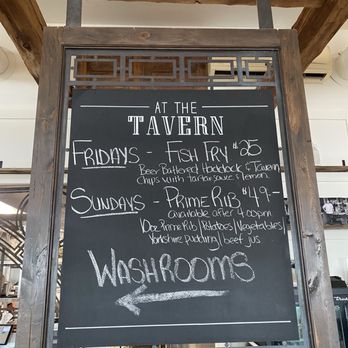 AT THE
TAVERN
FRIDAYS - FISH FRY $25
Beer Battered Haddock & Tavern
Chips with tartar sauce & lemon
SUNDAYS - PRIME RIB $49-
available after 4:00pm
10oz Prime Rib/Potatoes/Vegetables/
Yorkshire pudding/beef jus
WASHROOMS